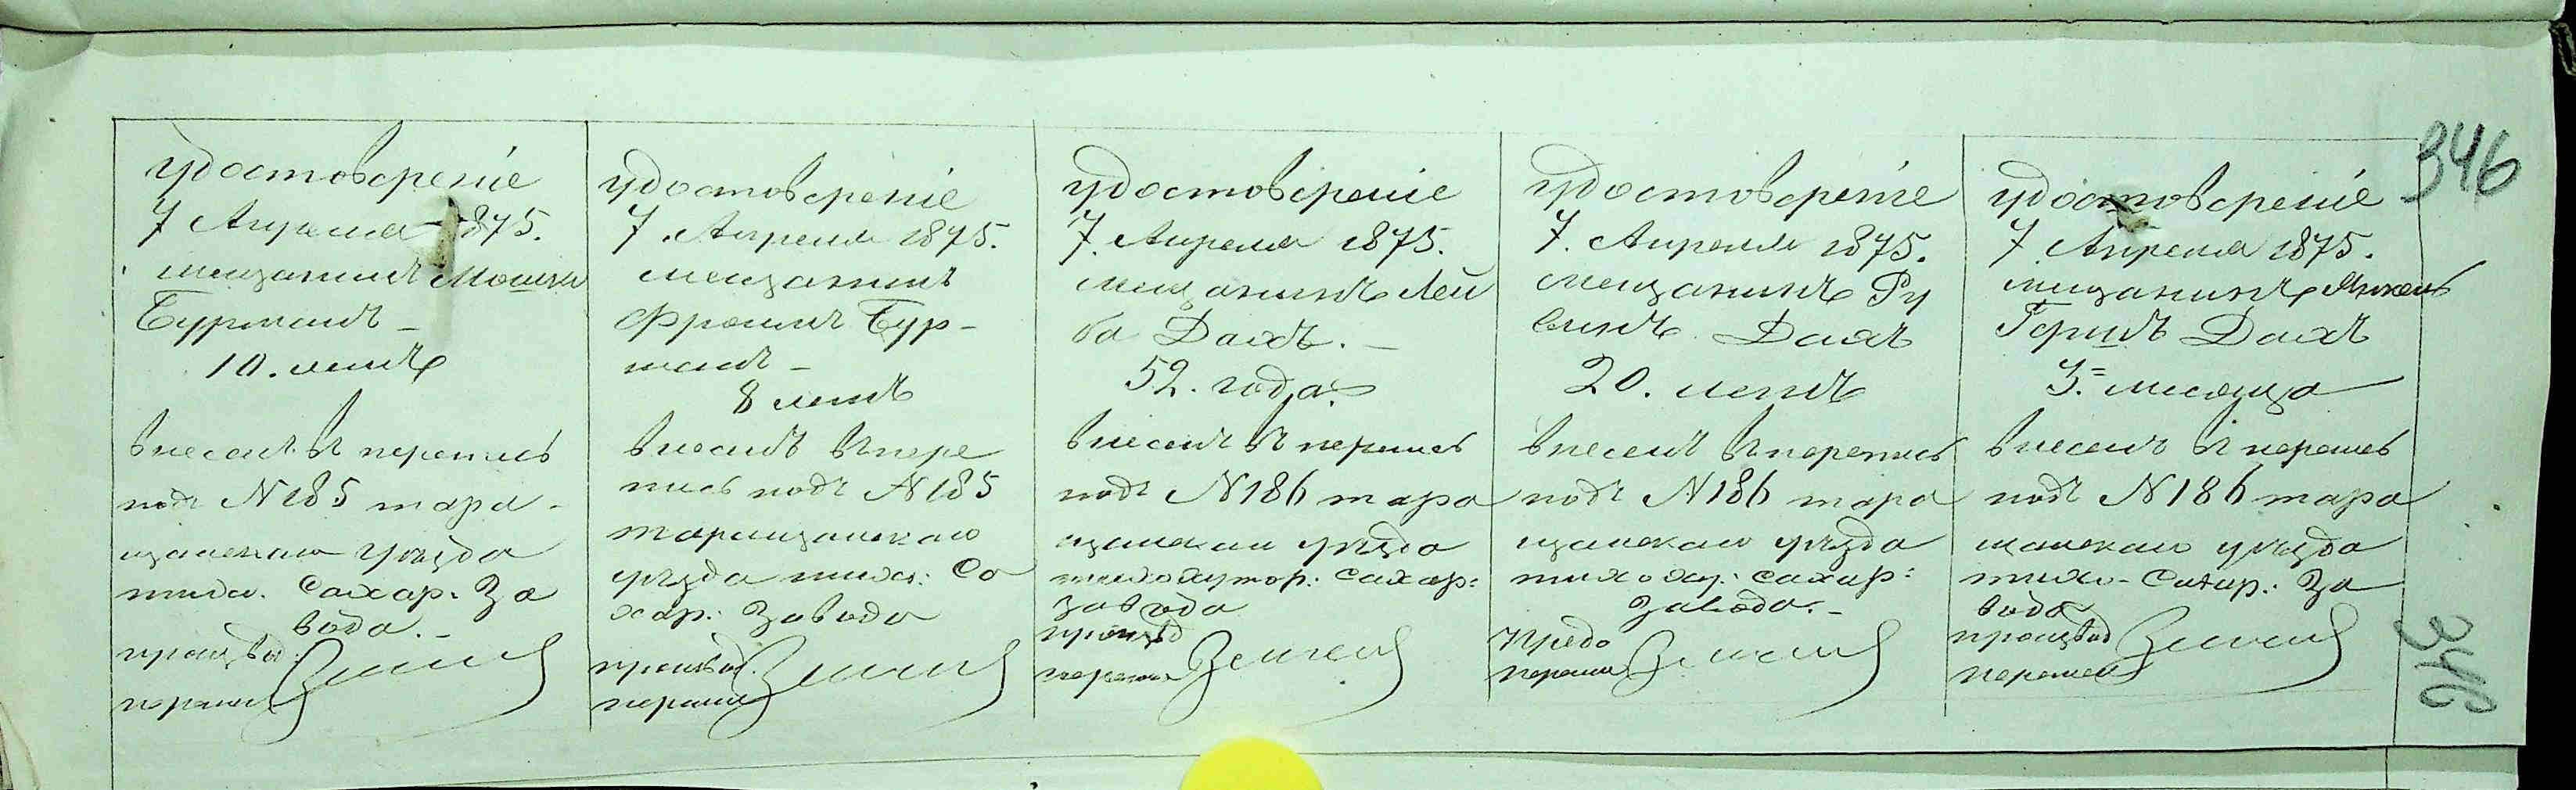 удостоверение
7 Апреля 1875.
мещанинъ Мошко
Бурманъ –
10. летъ
внесенъ въ перепись
подъ N 185 тара-
щанскаго уезда
тихо. Сахар. За
вода. –
производ.
перепись
удостоверение
7. Апреля 1875.
мещанинъ
Фроимъ Бур-
манъ –
8 летъ
внесенъ въ пере
пись подъ N 185
таращанскаго
уезда тихо: Са
хар: Завода
производ.
перепись
удостоверение
7. Апреля 1875.
мещанинъ Лей
ба Дахъ. –
52. года
внесенъ въ перепись
подъ N 186 тара
щанскаго уезда
тихохутор: Сахар:
завода
производ
перепись
удостоверение
7. Апреля 1875.
мещанинъ Ру
винъ Дахъ
20. летъ
внесенъ въ перепись
подъ N 186 тара
щанскаго уезда
тихоху: сахар:
завода. –
перепись
удостоверение
7 Апреля 1875.
мещанинъ
Гершъ Дахъ
месяца
внесенъ въ перепись
подъ N 186 тара
щанскаго уезда
тихо- Сахар: За
вода
производ
перепись
346
346